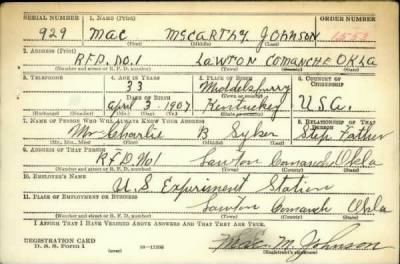 SERIAL NUMBER 1. NAME (Print) ORDER NUMBER
929 Mac McCarthy Johnson 1553
(First) (Middle) (Last)
2. ADDRESS (Print)
R.F.D. No. 1 Lawton Comanche Okla
(Number and street or R. F. D. number) (Town) (County) (State)
3. TELEPHONE 4. AGE IN YEARS 5. PLACE OF BIRTH 6. COUNTRY OF CITIZENSHIP
33 Middelsburry
DATE OF BIRTH (Town or county)
April 3 1907 Kentuckey U.S.A.
(Exchange) (Number) (Mo.) (Day) (Yr.) (State or country)
7. NAME OF PERSON WHO WILL ALWAYS KNOW YOUR ADDRESS 8. RELATIONSHIP OF THAT PERSON
Mr Charlie B Syker Step Father
(Mr., Mrs., Miss) (First) (Middle) (Last)
9. ADDRESS OF THAT PERSON
R.F.D. No 1 Lawton Comanch Okla
(Number and street or R. F. D. number) (Town) (County) (State)
10. EMPLOYER'S NAME
U.S Experiment Station
11. PLACE OF EMPLOYMENT OR BUSINESS
Lawton Comanch Okla
(Number and street or R. F. D. number) (Town) (County) (State)
I AFFIRM THAT I HAVE VERIFIED ABOVE ANSWERS AND THAT THEY ARE TRUE.
REGISTRATION CARD
D. S. S. Form 1 Mac M. Johnson
(Registrant's signature)